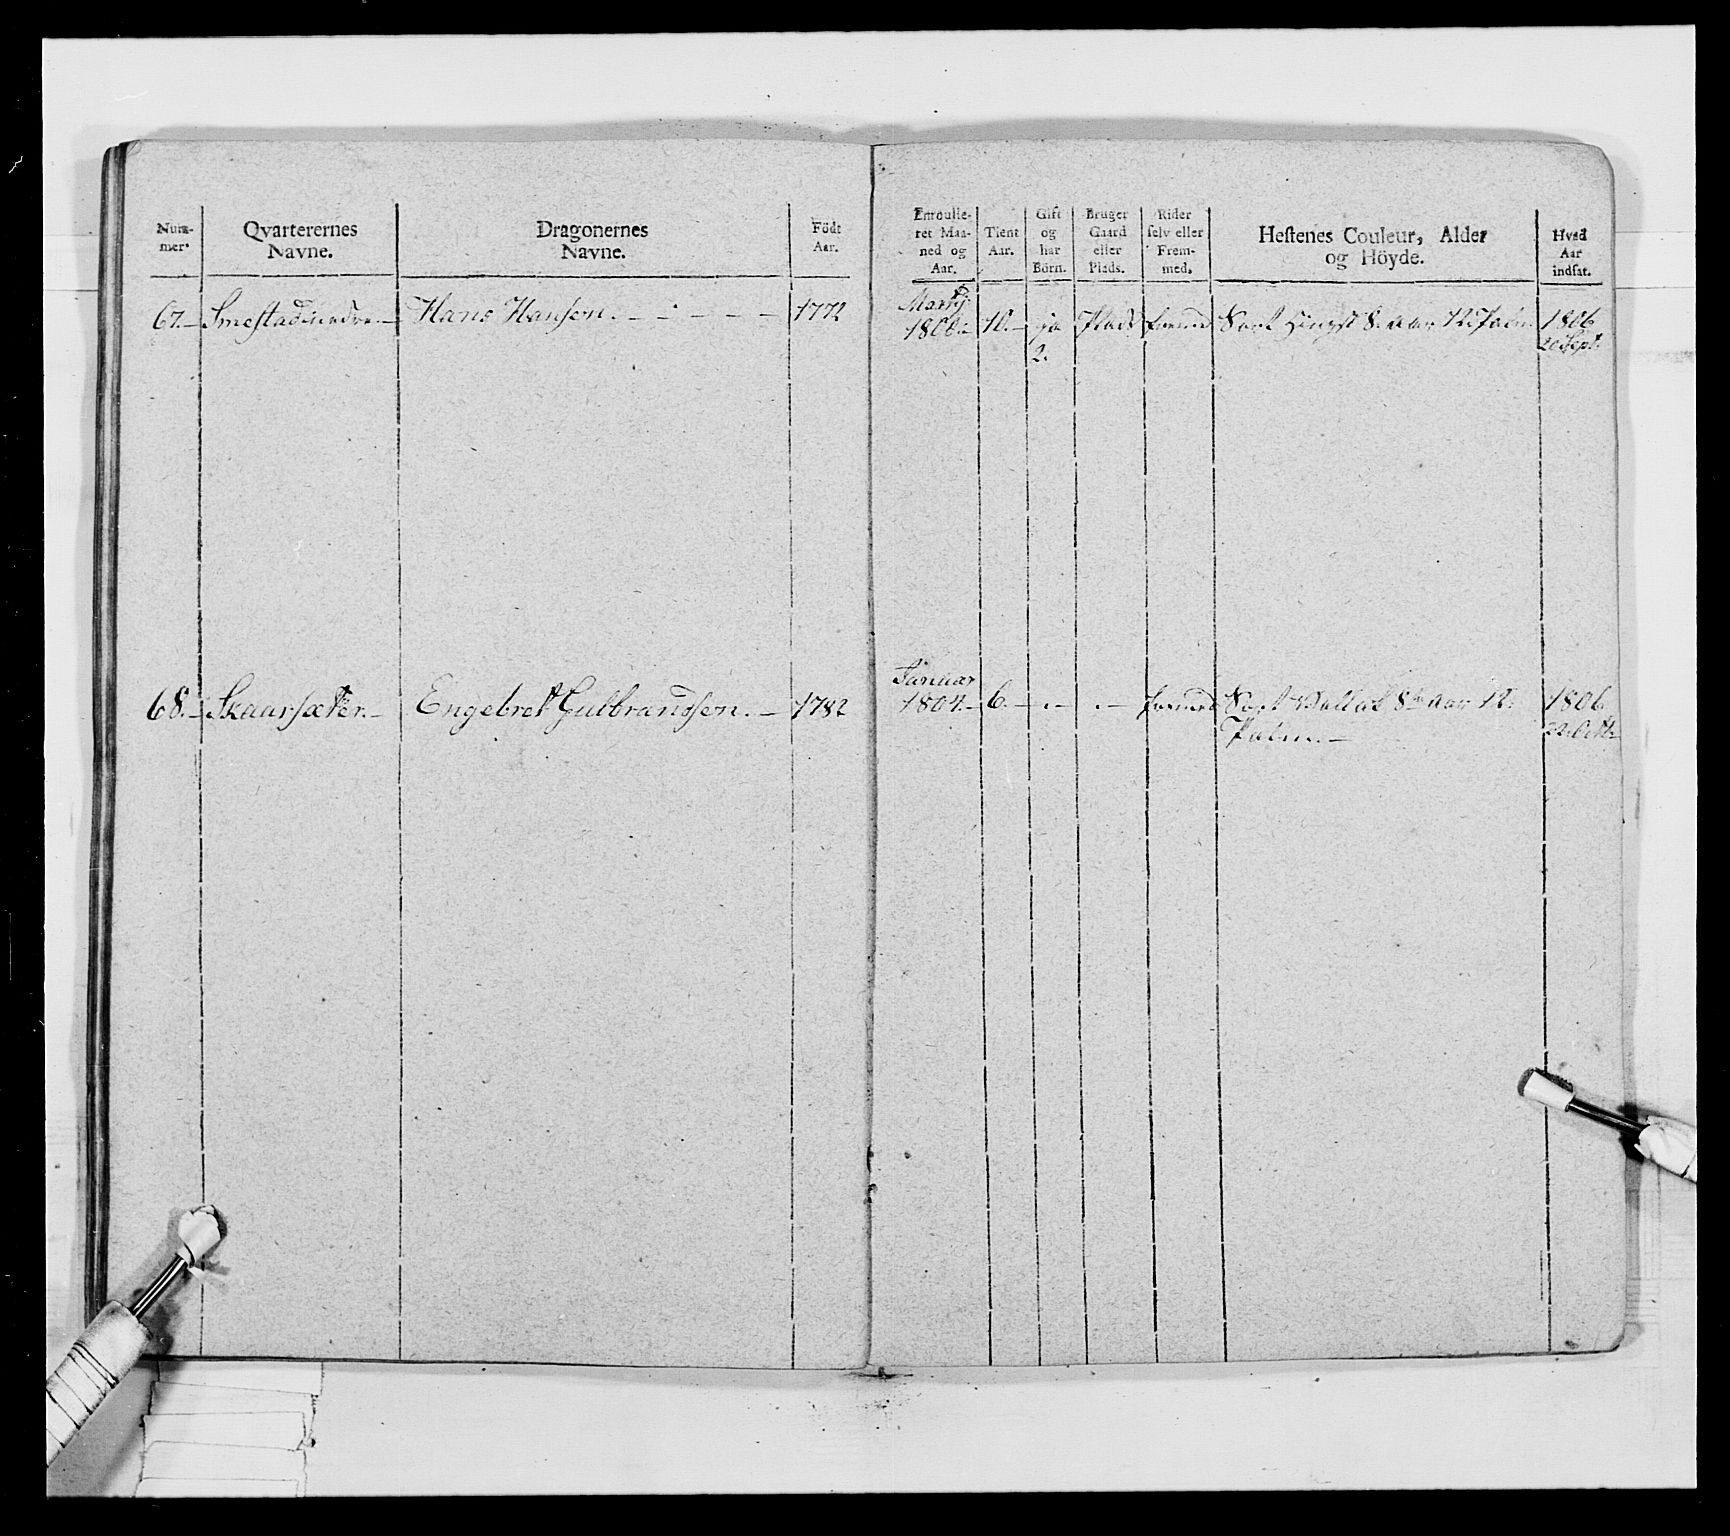 Num-
mer.
Qvarterernes
Navne.
Dragonernes
Navne.
Födt
Aar.
Enroulle-
ret Maa-
ned og
Aar.
Tient
Aar.
Gift
og
har
Börn.
Bruger
Gaard
eller
Plads.
Rider
selv eller
Frem-
med.
Hestenes Couleur, Alder
og Höyde.
Hvad
Aar
indsat.
67.- Smestad nedre.- Hans Hansen. - - - - - 1772
1800.- 10.- ja Plads fremed Sort Hingst 8. Aar 12. Palm. 1806
2. 20 Sept.
Januar
68.- Skaarsæter.- Engebret Gulbrandsen.- 1782 1804.- 6.- .- .- fremed Sort Vallak 8 Aar 12. 1806.
Palm.- 22. Oct.